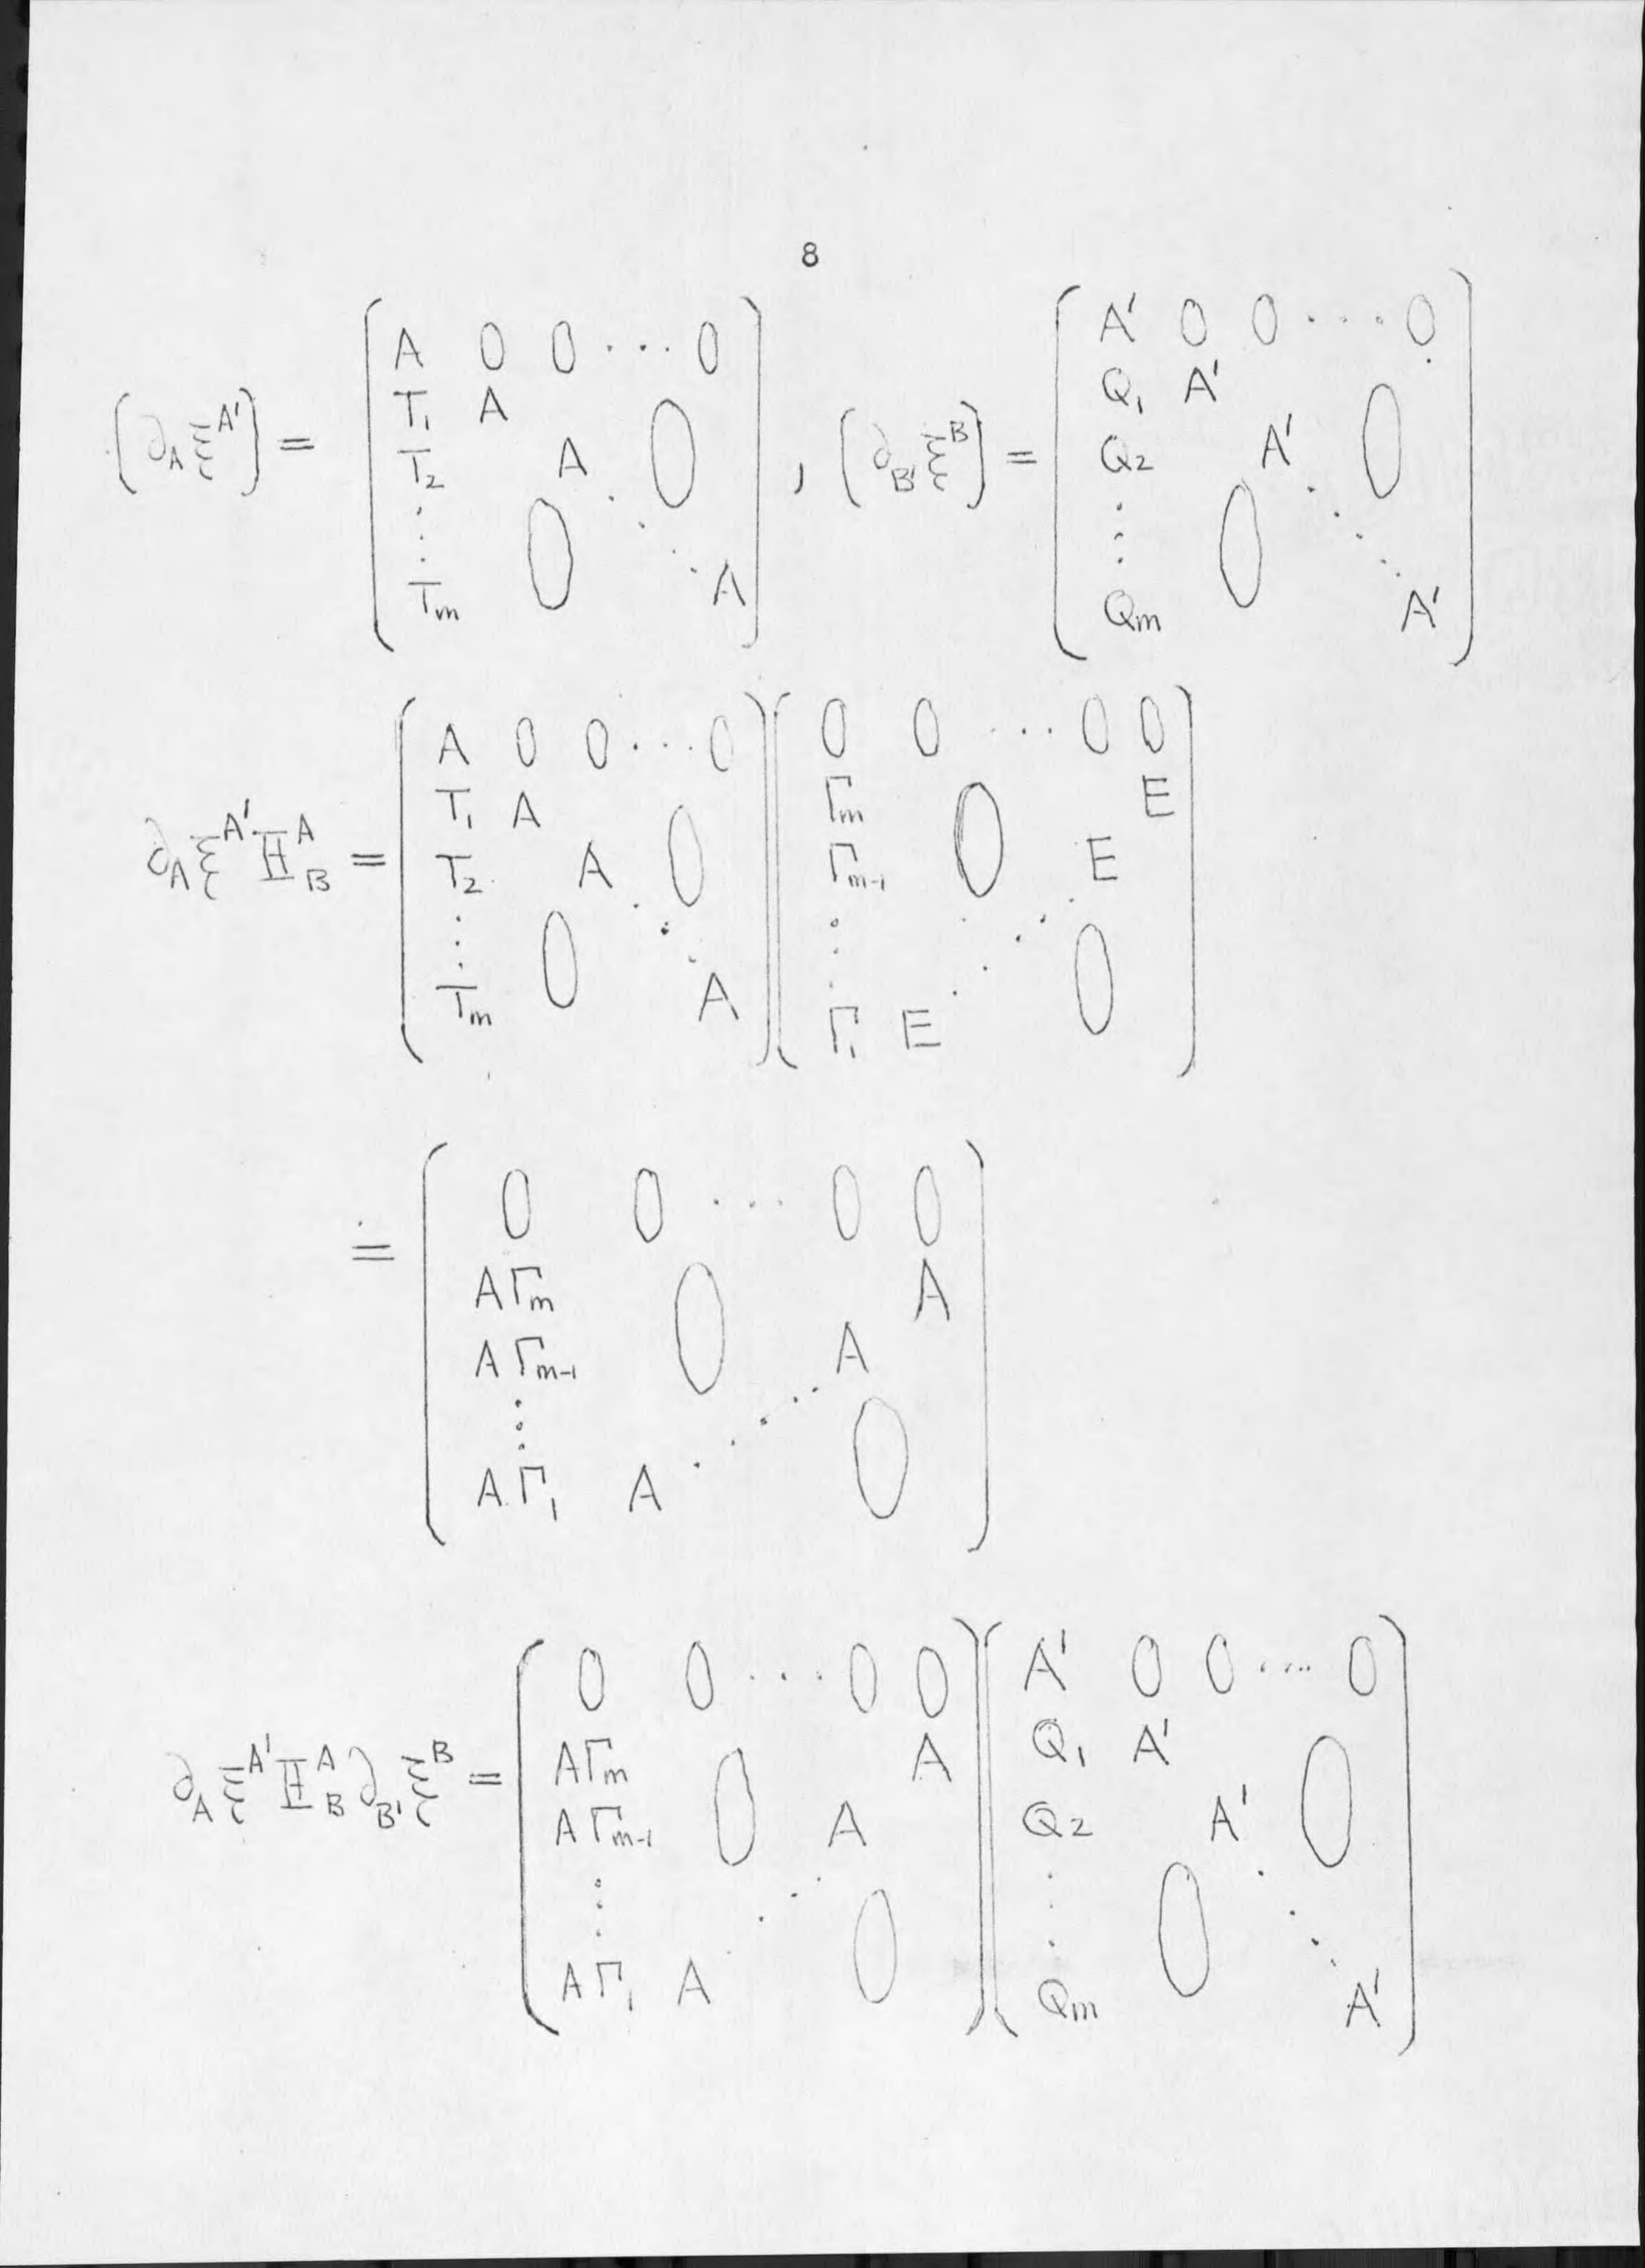 8
(∂_A ξ^{A'}) = ( A 0 0 ··· 0 ; T_1 A ; T_2 A 0 ; ⋮ 0 ⋱ ; T_m A ) , (∂_{B'} ξ^B) = ( A' 0 0 ···· 0 ; Q_1 A' ; Q_2 A' 0 ; ⋮ 0 ⋱ ; Q_m A' )
∂_A ξ^{A'} Ξ^A_B = ( A 0 0 ··· 0 ; T_1 A ; T_2 A 0 ; ⋮ 0 ⋱ ; T_m A ) ( 0 0 ··· 0 0 ; Γ_m 0 E ; Γ_{m-1} E ; ⋮ ⋰ 0 ; Γ_1 E )
= ( 0 0 ··· 0 0 ; AΓ_m 0 A ; AΓ_{m-1} A ; ⋮ ⋰ 0 ; AΓ_1 A )
∂_A ξ^{A'} Ξ^A_B ∂_{B'} ξ^B = ( 0 0 ··· 0 0 ; AΓ_m 0 A ; AΓ_{m-1} A ; ⋮ ⋰ 0 ; AΓ_1 A ) ( A' 0 0 ···· 0 ; Q_1 A' ; Q_2 A' 0 ; ⋮ 0 ⋱ ; Q_m A' )